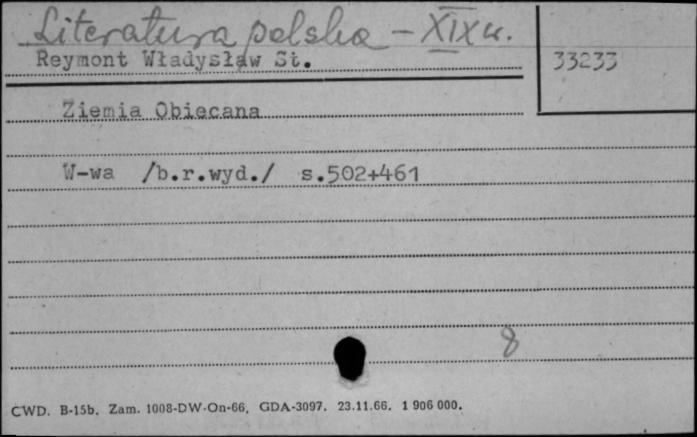 Literatura polska - XIX w.
Reymont Władysław St.
33233
Ziemia Obiecana
W-wa /b.r.wyd./ s.502+461
8
CWD. B-15b. Zam. 1008-DW-On-66. GDA-3097. 23.11.66. 1 906 000.